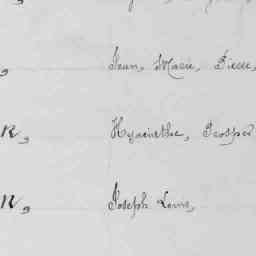 , Jean, Marie, Pierre,
n, Hyacinthe, Prosper
n, Joseph Louis,